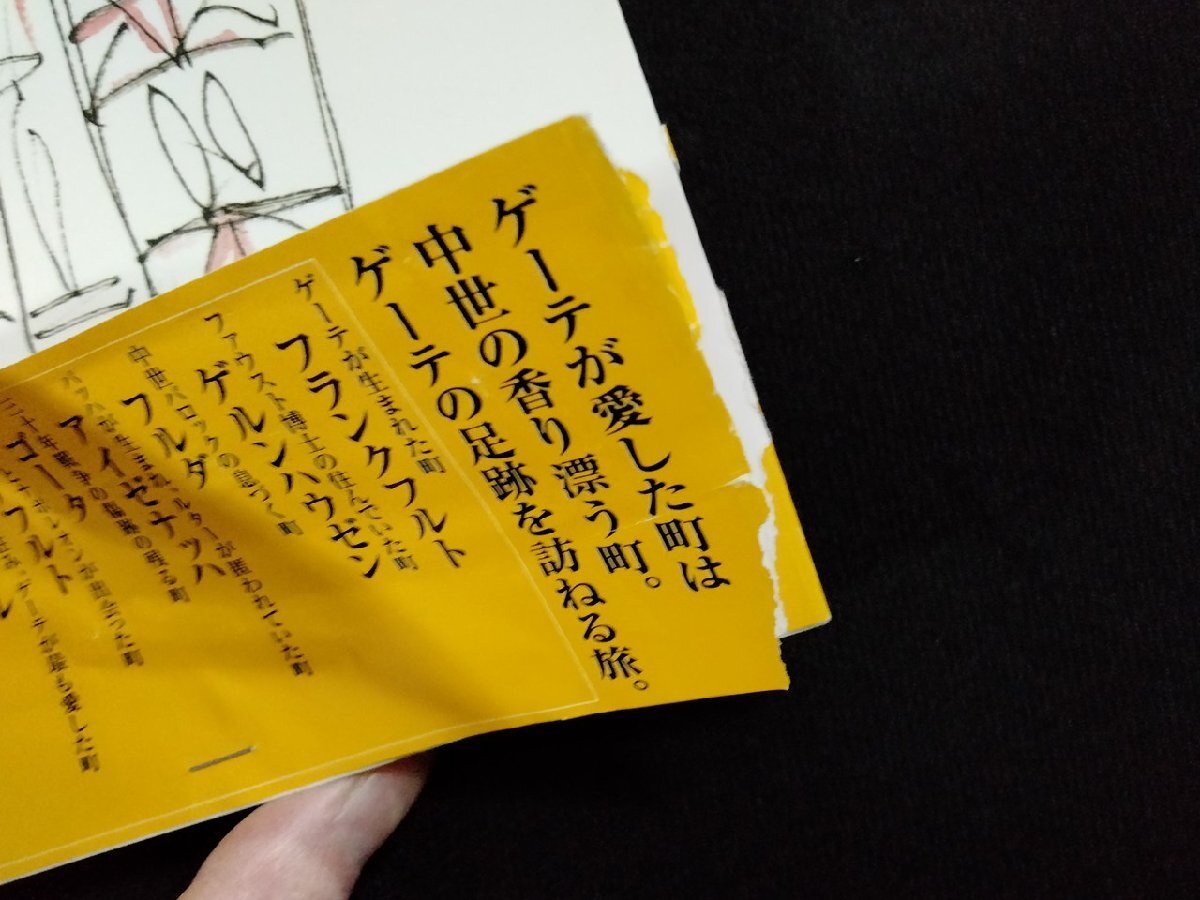 ゲーテが愛した町は
中世の香り漂う町。
ゲーテの足跡を訪ねる旅。
ゲーテが生まれた町
フランクフルト
ファウスト博士の住んでいた町
ゲルンハウゼン
中世バロックの息づく町
フルダ
バッハが生まれ、ルターが匿われていた町
アイゼナッハ
三十年戦争の傷跡の残る町
ゴータ
フルト
ゲーテが最も愛した町